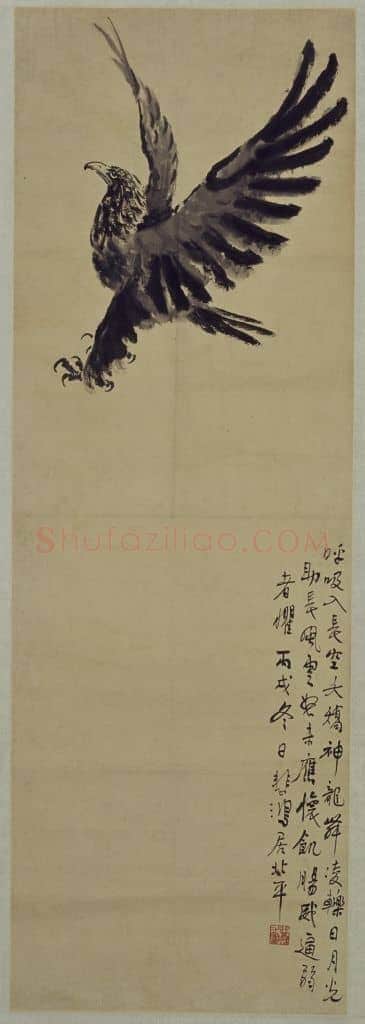 Shufaziliao.COM
呼吸入長空夭矯神龍舞凌轢日月光
助長風雲怒未應懷飢腸威逼弱
者懼 丙戌冬日悲鴻居北平